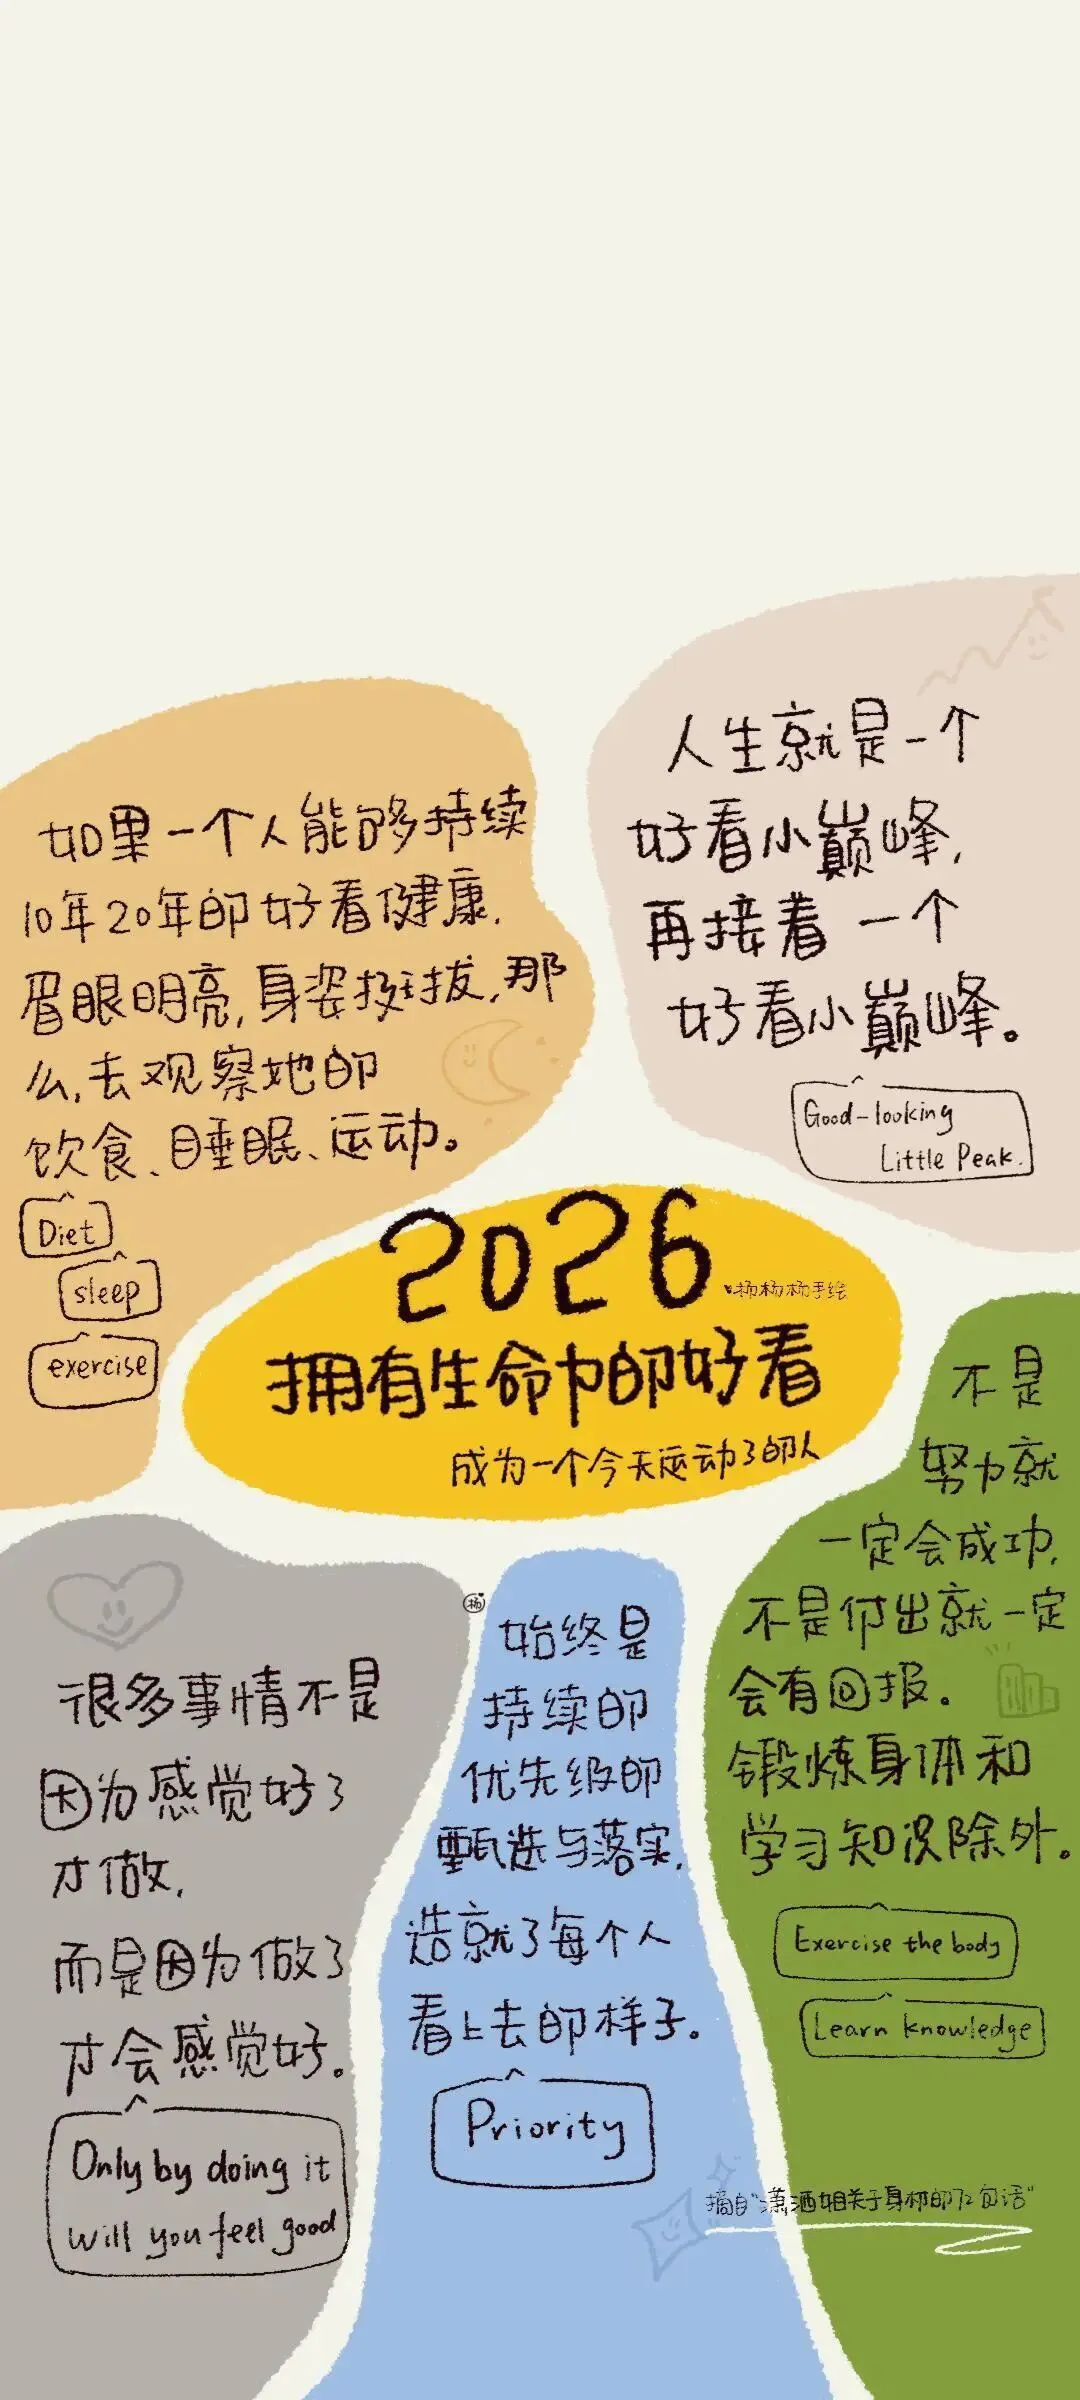 人生就是一个
好看小巅峰,
再接着一个
好看小巅峰。
Good-looking
Little Peak.
如果一个人能够持续
10年20年的好看健康,
眉眼明亮,身姿挺拔,那
么,去观察她的
饮食、睡眠、运动。
Diet
sleep
exercise
2026
杨杨杨手绘
拥有生命力的好看
成为一个今天运动了的人
不是
努力就
一定会成功,
不是付出就一定
会有回报。
锻炼身体和
学习知识除外。
Exercise the body
Learn knowledge
很多事情不是
因为感觉好了
才做,
而是因为做了
才会感觉好。
Only by doing it
will you feel good
杨
始终是
持续的
优先级的
甄选与落实,
造就了每个人
看上去的样子。
Priority
摘自"潇洒姐关于身材的72句话"